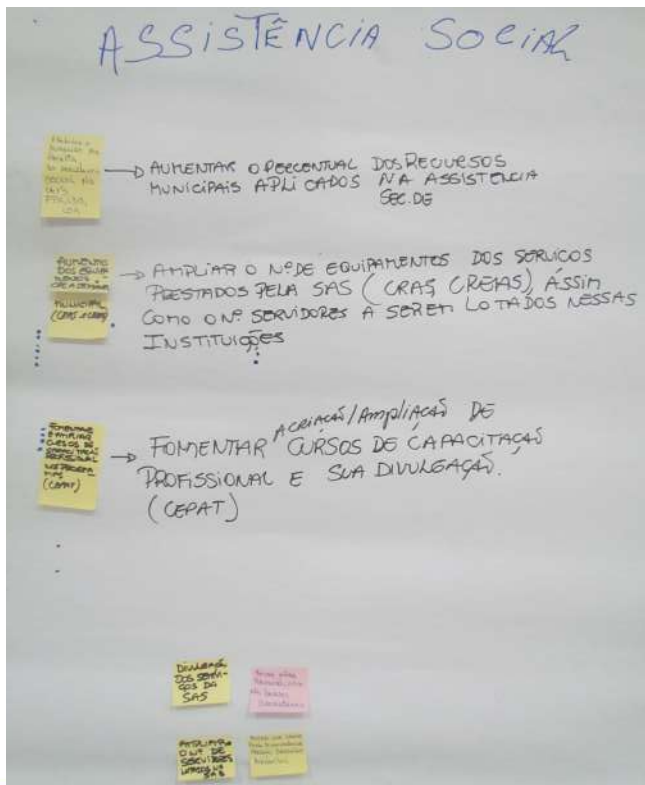 ASSISTÊNCIA SOCIAL
AUMENTAR O PERCENTUAL DOS RECURSOS
MUNICIPAIS APLICADOS NA ASSISTENCIA
SEC. DE
AUMENTO
DOS EQUIPA
MUNICIPAL
(CRAS e CREAS)
AMPLIAR O Nº DE EQUIPAMENTOS DOS SERVICOS
PRESTADOS PELA SAS (CRAS, CREAS), ASSIM
COMO O Nº SERVIDORES A SEREM LOTADOS NESSAS
INSTITUIÇÕES
FOMENTAR
E AMPLIAR
CURSOS DE
CAPACITAÇÃO
PROFISSIONAL
(CEPAT)
A CRIAÇÃO/AMPLIAÇÃO DE
FOMENTAR CURSOS DE CAPACITAÇÃO
PROFISSIONAL E SUA DIVULGAÇÃO.
(CEPAT)
DIVULGAÇÃO
DOS SERVI-
ÇOS DA
SAS
AMPLIAR
O Nº DE
SERVIDORES
LOTADOS NA
SAS